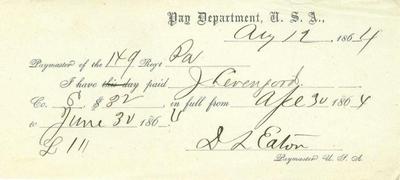 Pay Department, U. S. A.,
Aug 12 1864
Paymaster of the 149 Regt Pa
I have this day paid J Levengord
Co. $ 32 in full from Apl 30 1864
to June 30 1864
£ 111
D L Eaton
Paymaster U. S. A